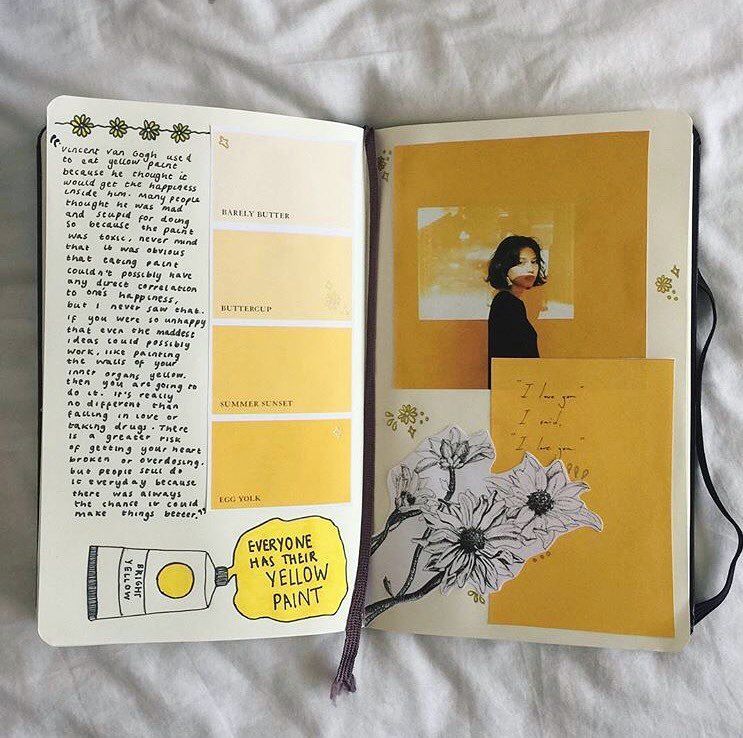 "Vincent van Gogh used
to eat yellow paint
because he thought it
would get the happiness
inside him. Many people
thought he was mad
and stupid for doing
so because the paint
was toxic, never mind
that it was obvious
that eating paint
couldn't possibly have
any direct correlation
to one's happiness,
but I never saw that.
If you were so unhappy
that even the maddest
ideas could possibly
work, like painting
the walls of your
inner organs yellow.
then you are going to
do it. It's really
no different than
falling in love or
taking drugs. There
is a greater risk
of getting your heart
broken or overdosing.
but people still do
it everyday because
there was always
the chance it could
make things better."
BARELY BUTTER
BUTTERCUP
SUMMER SUNSET
EGG YOLK
BRIGHT
YELLOW
EVERYONE
HAS THEIR
YELLOW
PAINT
"I love you"
I said.
"I love you